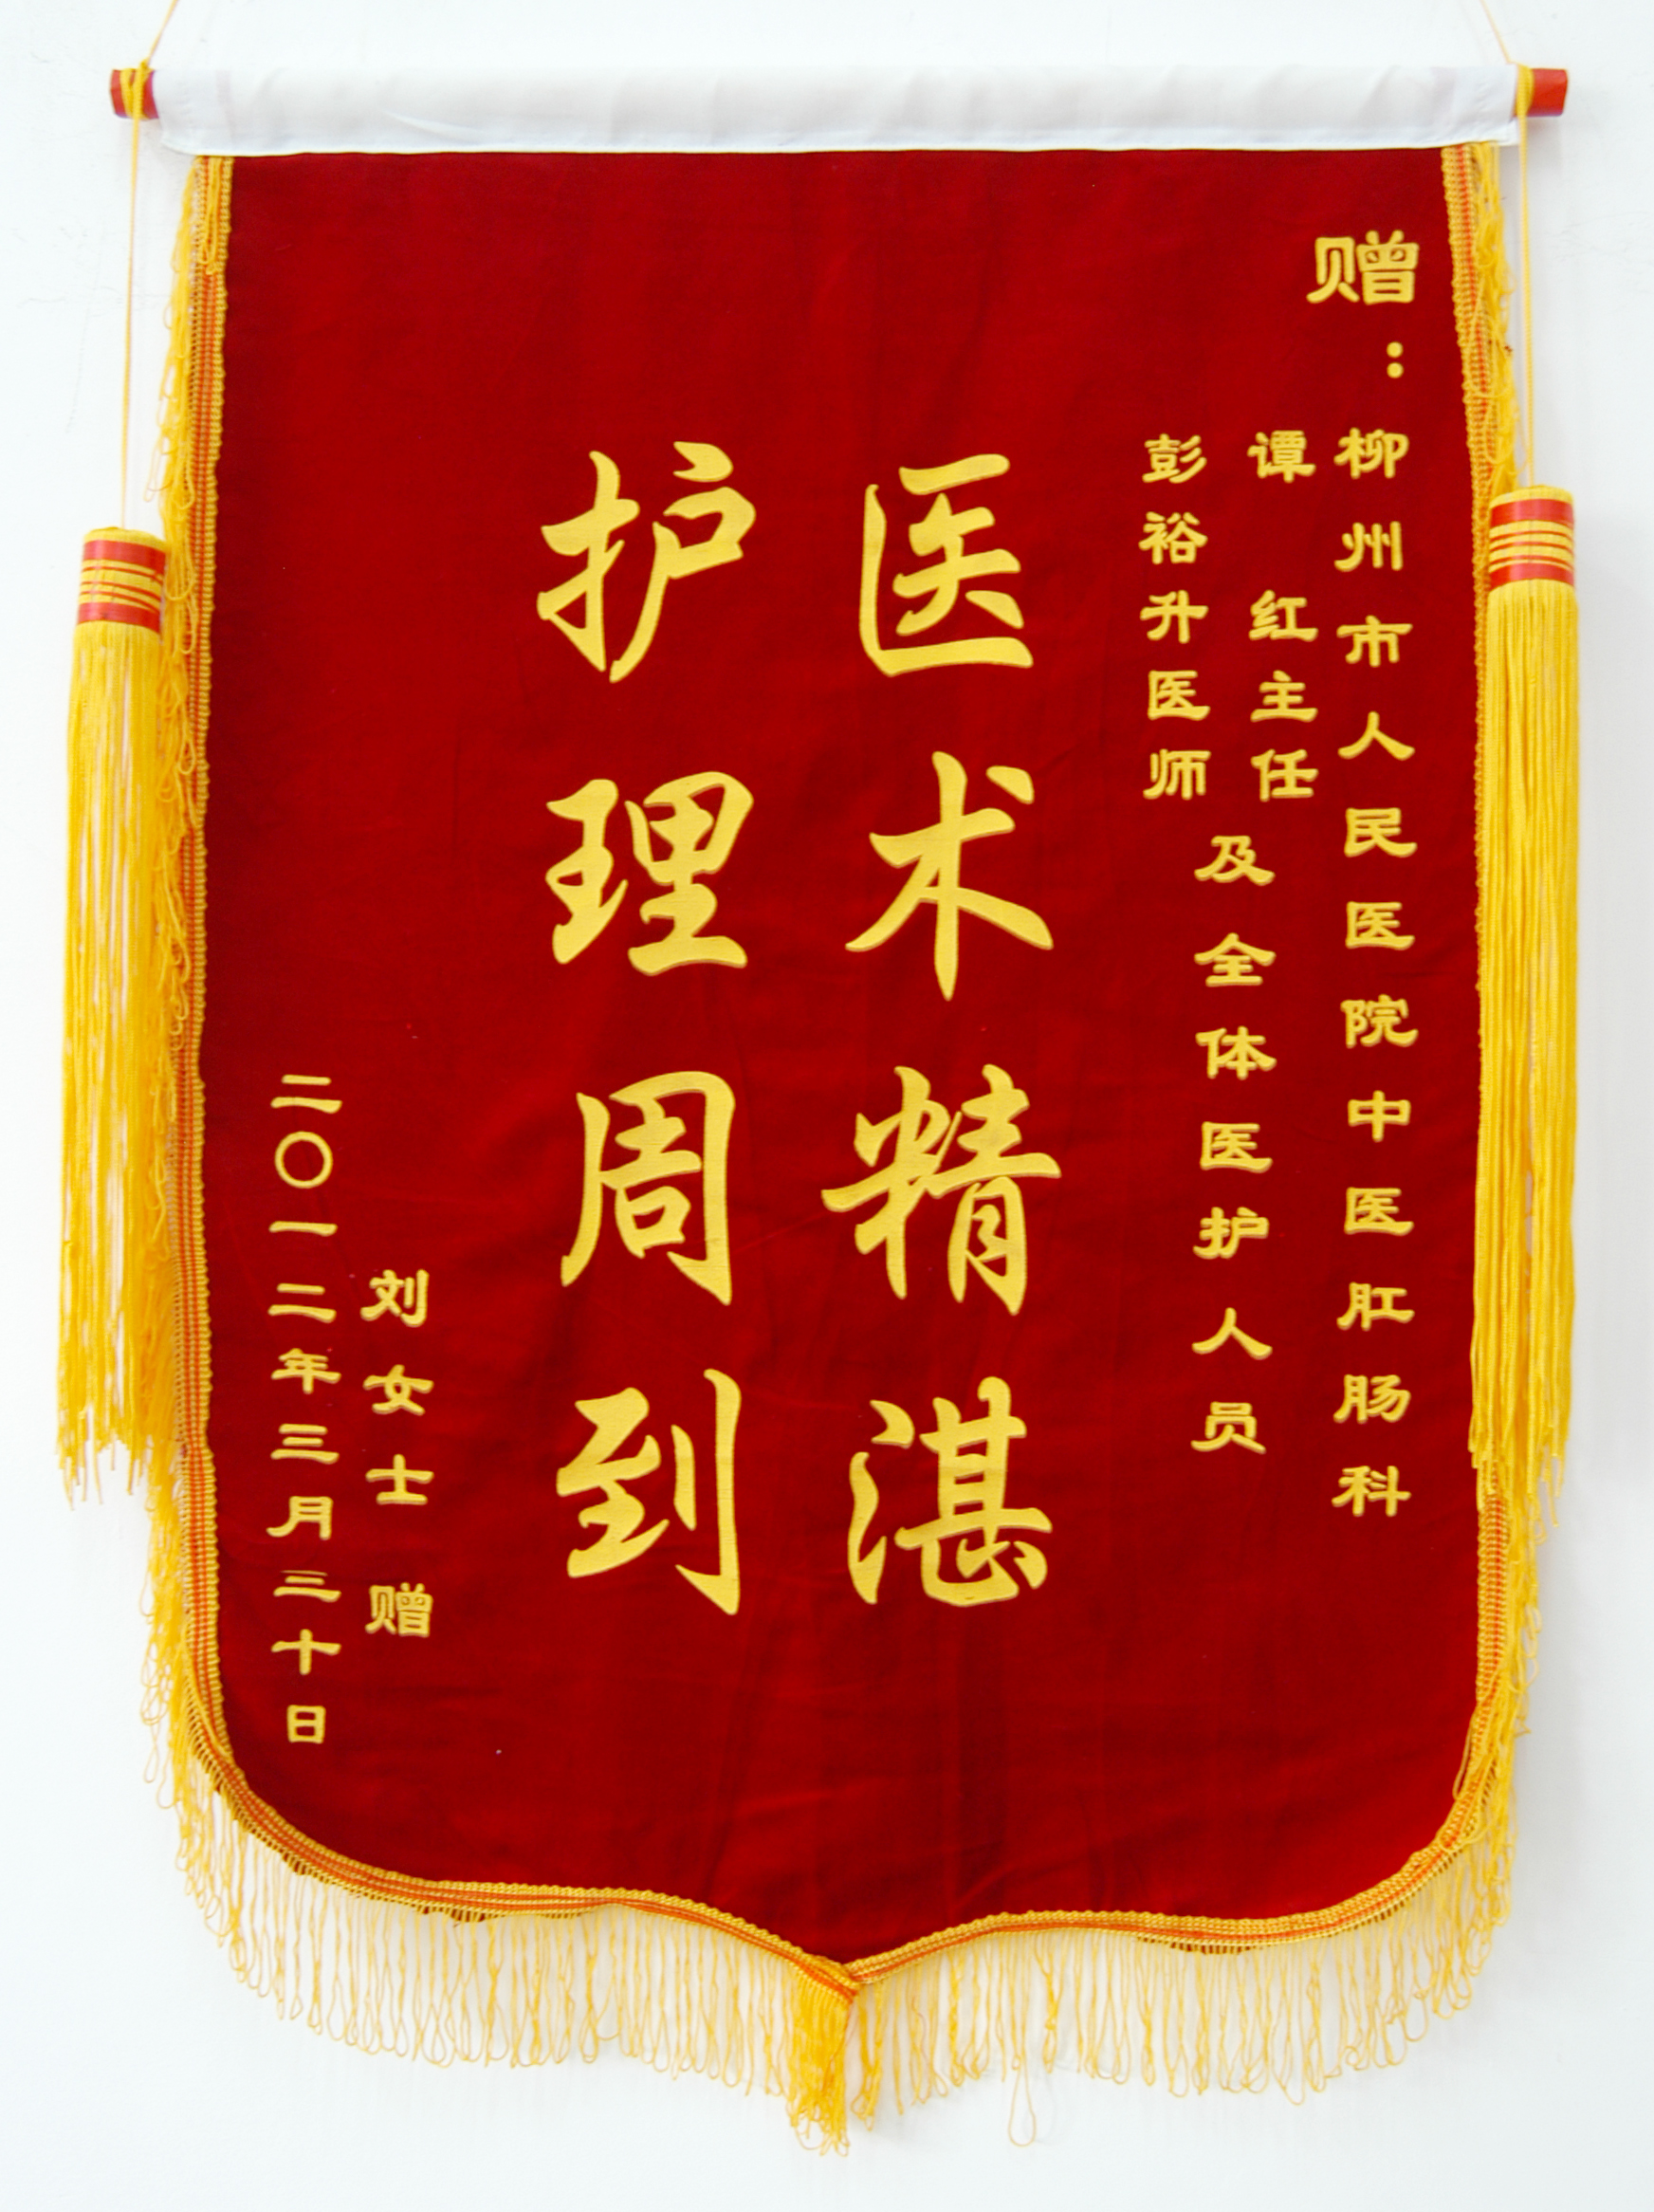 赠：
柳州市人民医院中医肛肠科
谭红主任
彭裕升医师
及全体医护人员
医术精湛
护理周到
刘女士赠
二〇一二年三月三十日